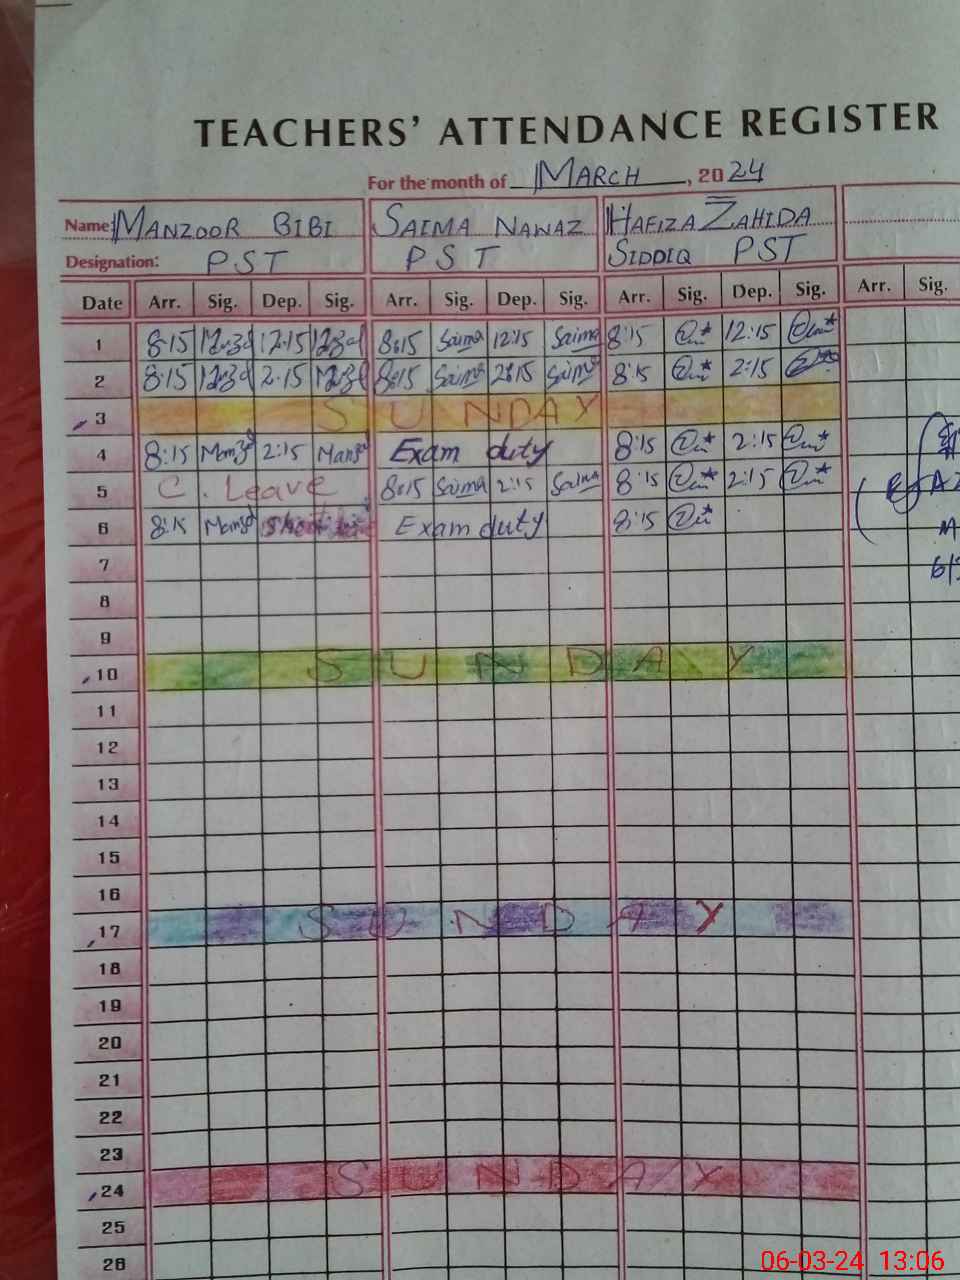 TEACHERS' ATTENDANCE REGISTER
For the month of MARCH, 2024
Name: MANZOOR BIBI SAIMA NAWAZ HAFIZA ZAHIDA
Designation: PST PST SIDDIQ PST
Date Arr. Sig. Dep. Sig. Arr. Sig. Dep. Sig. Arr. Sig. Dep. Sig. Arr. Sig.
1 8:15 12:15 8:15 Saima 12:15 Saima 8:15 12:15
2 8:15 2:15 8:15 Saima 2:15 Saima 8:15 2:15
3 SUNDAY
4 8:15 2:15 Exam duty 8:15 2:15
5 C. Leave 8:15 Saima 2:15 Saima 8:15 2:15
6 8:15 Exam duty 8:15
7
8
9
10 SUNDAY
11
12
13
14
15
16
17 SUNDAY
18
19
20
21
22
23
24 SUNDAY
25
26
06-03-24 13:06